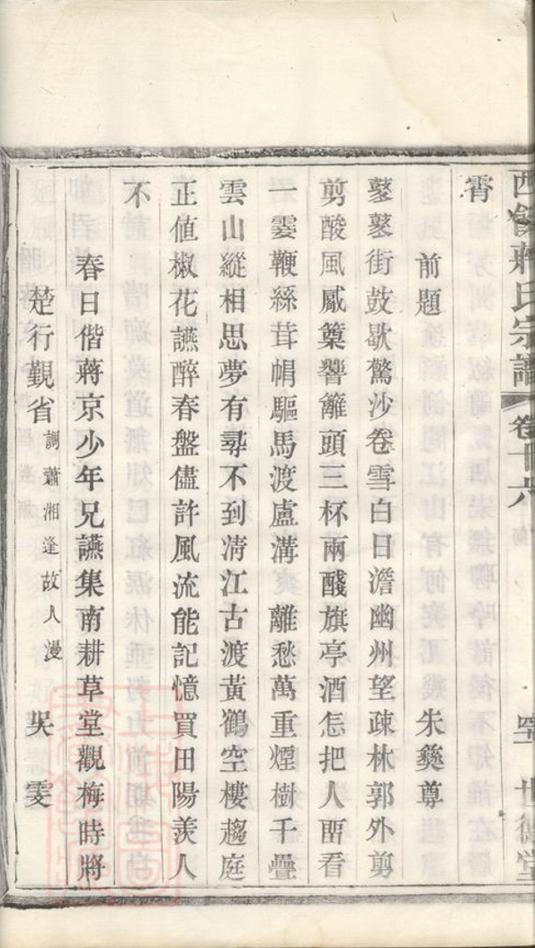 西餘蔣氏宗譜 卷十六 世德堂
霄
前題 朱彝尊
鼕鼕街鼓歇驚沙卷雪白日澹幽州望疎林郭外剪
剪酸風颳篥響籬頭三杯兩醆旗亭酒怎把人畱看
一霎鞭絲茸帽驅馬渡盧溝 離愁萬重煙樹千疊
雲山縱相思夢有尋不到淸江古渡黃鶴空樓趨庭
正値椒花讌醉春盤儘許風流能記憶買田陽羨人
不
春日偕蔣京少年兄讌集南耕草堂觀梅時將
楚行覲省 調瀟湘逢故人漫 吳雯